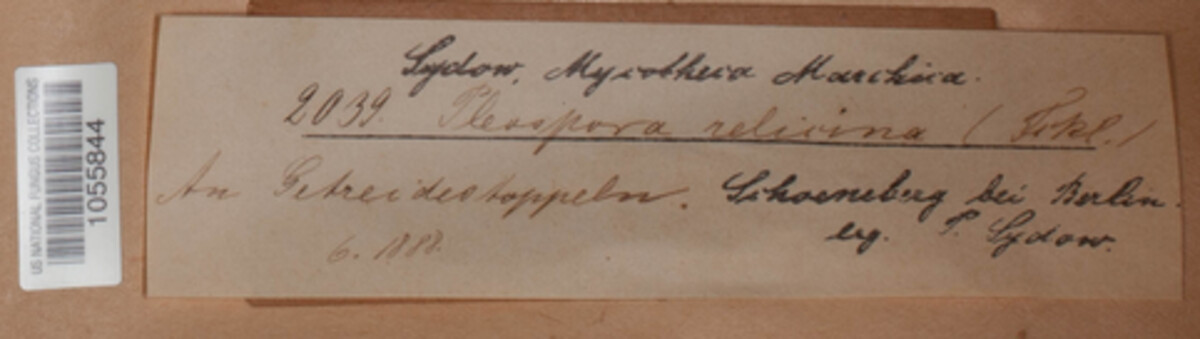 US NATIONAL FUNGUS COLLECTIONS
1055844
Sydow, Mycotheca Marchica.
2039. Pleospora relicina (Fckl.)
An Getreidestoppeln. Schoeneberg bei Berlin.
6. 1888. leg. P. Sydow.